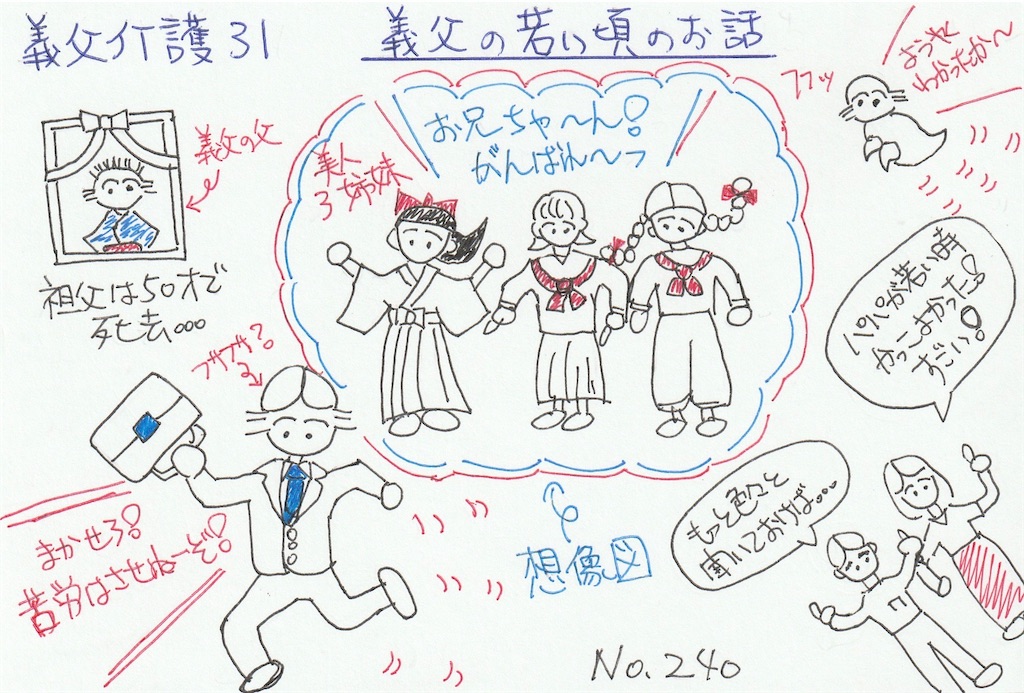 義父介護31
義父の若い頃のお話
フフッ
ようやく
わかったか〜
義父の父
祖父は50才で
死去...
お兄ちゃ〜ん!
がんばれ〜っ
美人
3姉妹
パパが若い時
かっこよかった!
すごい!
フサフサ?
まかせろ!
苦労はさせねーぞ!
想像図
もっと色々と
聞いておけば....
No.240